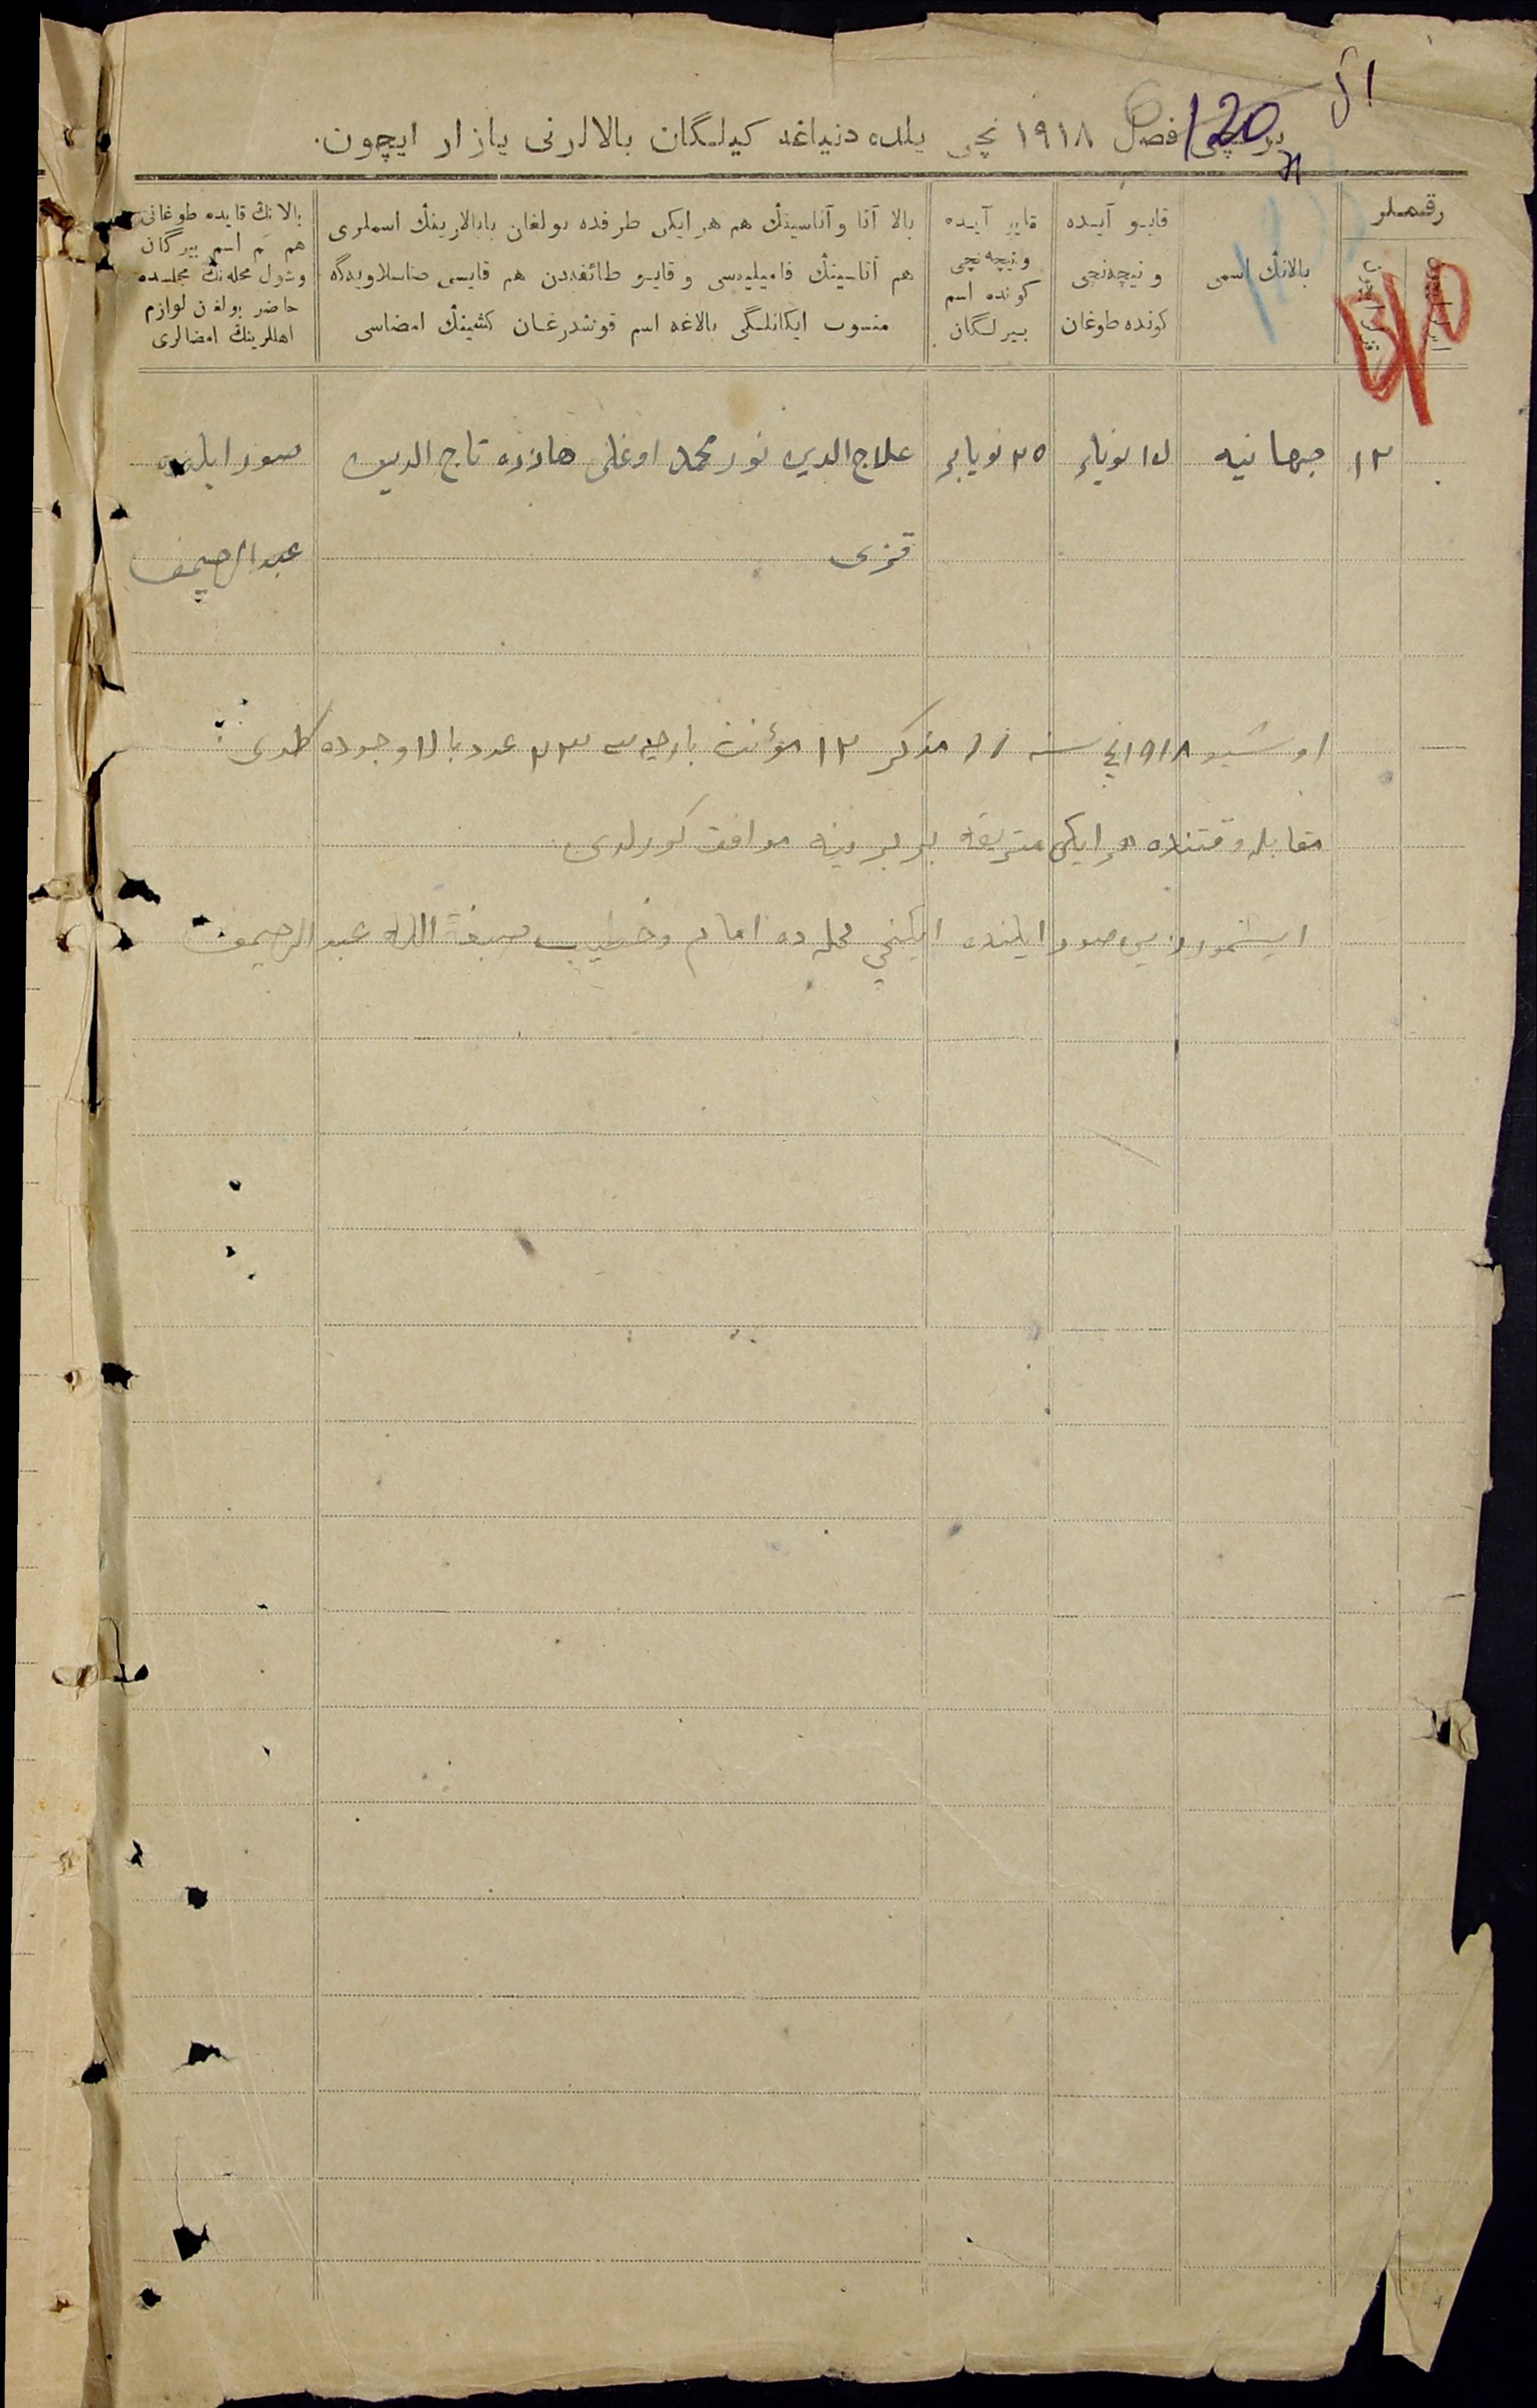 51
120
برنچی فصل ١٩١٨ نچی یلده دنیاغه کیلگان بالالرنی یازار ایچون.
رقملر
بالانڭ اسمی
قایو آیده
و نیچه‌نچی
کونده طوغان
قایو آیده
و نیچه‌نچی
کونده اسم
بیرلگان
بالا آتا و آناسینڭ هم هر ایکی طرفده بولغان بابالارینڭ اسملری
هم آتاسینڭ فامیلیه‌سی و قایو طائفه‌دن هم قایسی صاسلاویه‌گه
منسوب ایکانلگی بالاغه اسم قوشدرغان کشینڭ امضاسی
بالانڭ قایده طوغانی
هم کم اسم بیرگان
وشول محله‌نڭ مجلسده
حاضر بولغان لوازم
اهللرینڭ امضالری
١٢ جهانیه ١٥ نویابر ٢٥ نویابر علاج الدین نور محمد اوغلی تاج الدین
قزی
عبدالرحیموف
اوشبو ١٩١٨ نچی سنه ١١ مذکر ١٢ مؤنث بارچه‌سی ٢٣ عدد بالا وجوده کلدی
مقابله وقتنده هر ایکی متریقه بر برینه موافق کورلدی
ایکنچی محله ده امام وخطیب صبغة الله عبدالرحیموف